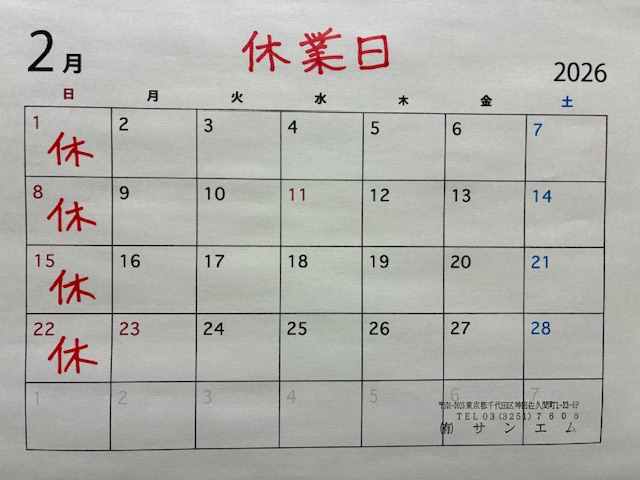 2月 休業日 2026
日 月 火 水 木 金 土
1 2 3 4 5 6 7
休
8 9 10 11 12 13 14
休
15 16 17 18 19 20 21
休
22 23 24 25 26 27 28
休
1 2 3 4 5 6 7
〒101-0025東京都千代田区神田佐久間町1-23-6F
TEL 03(3251)7608
㈲ サンエム